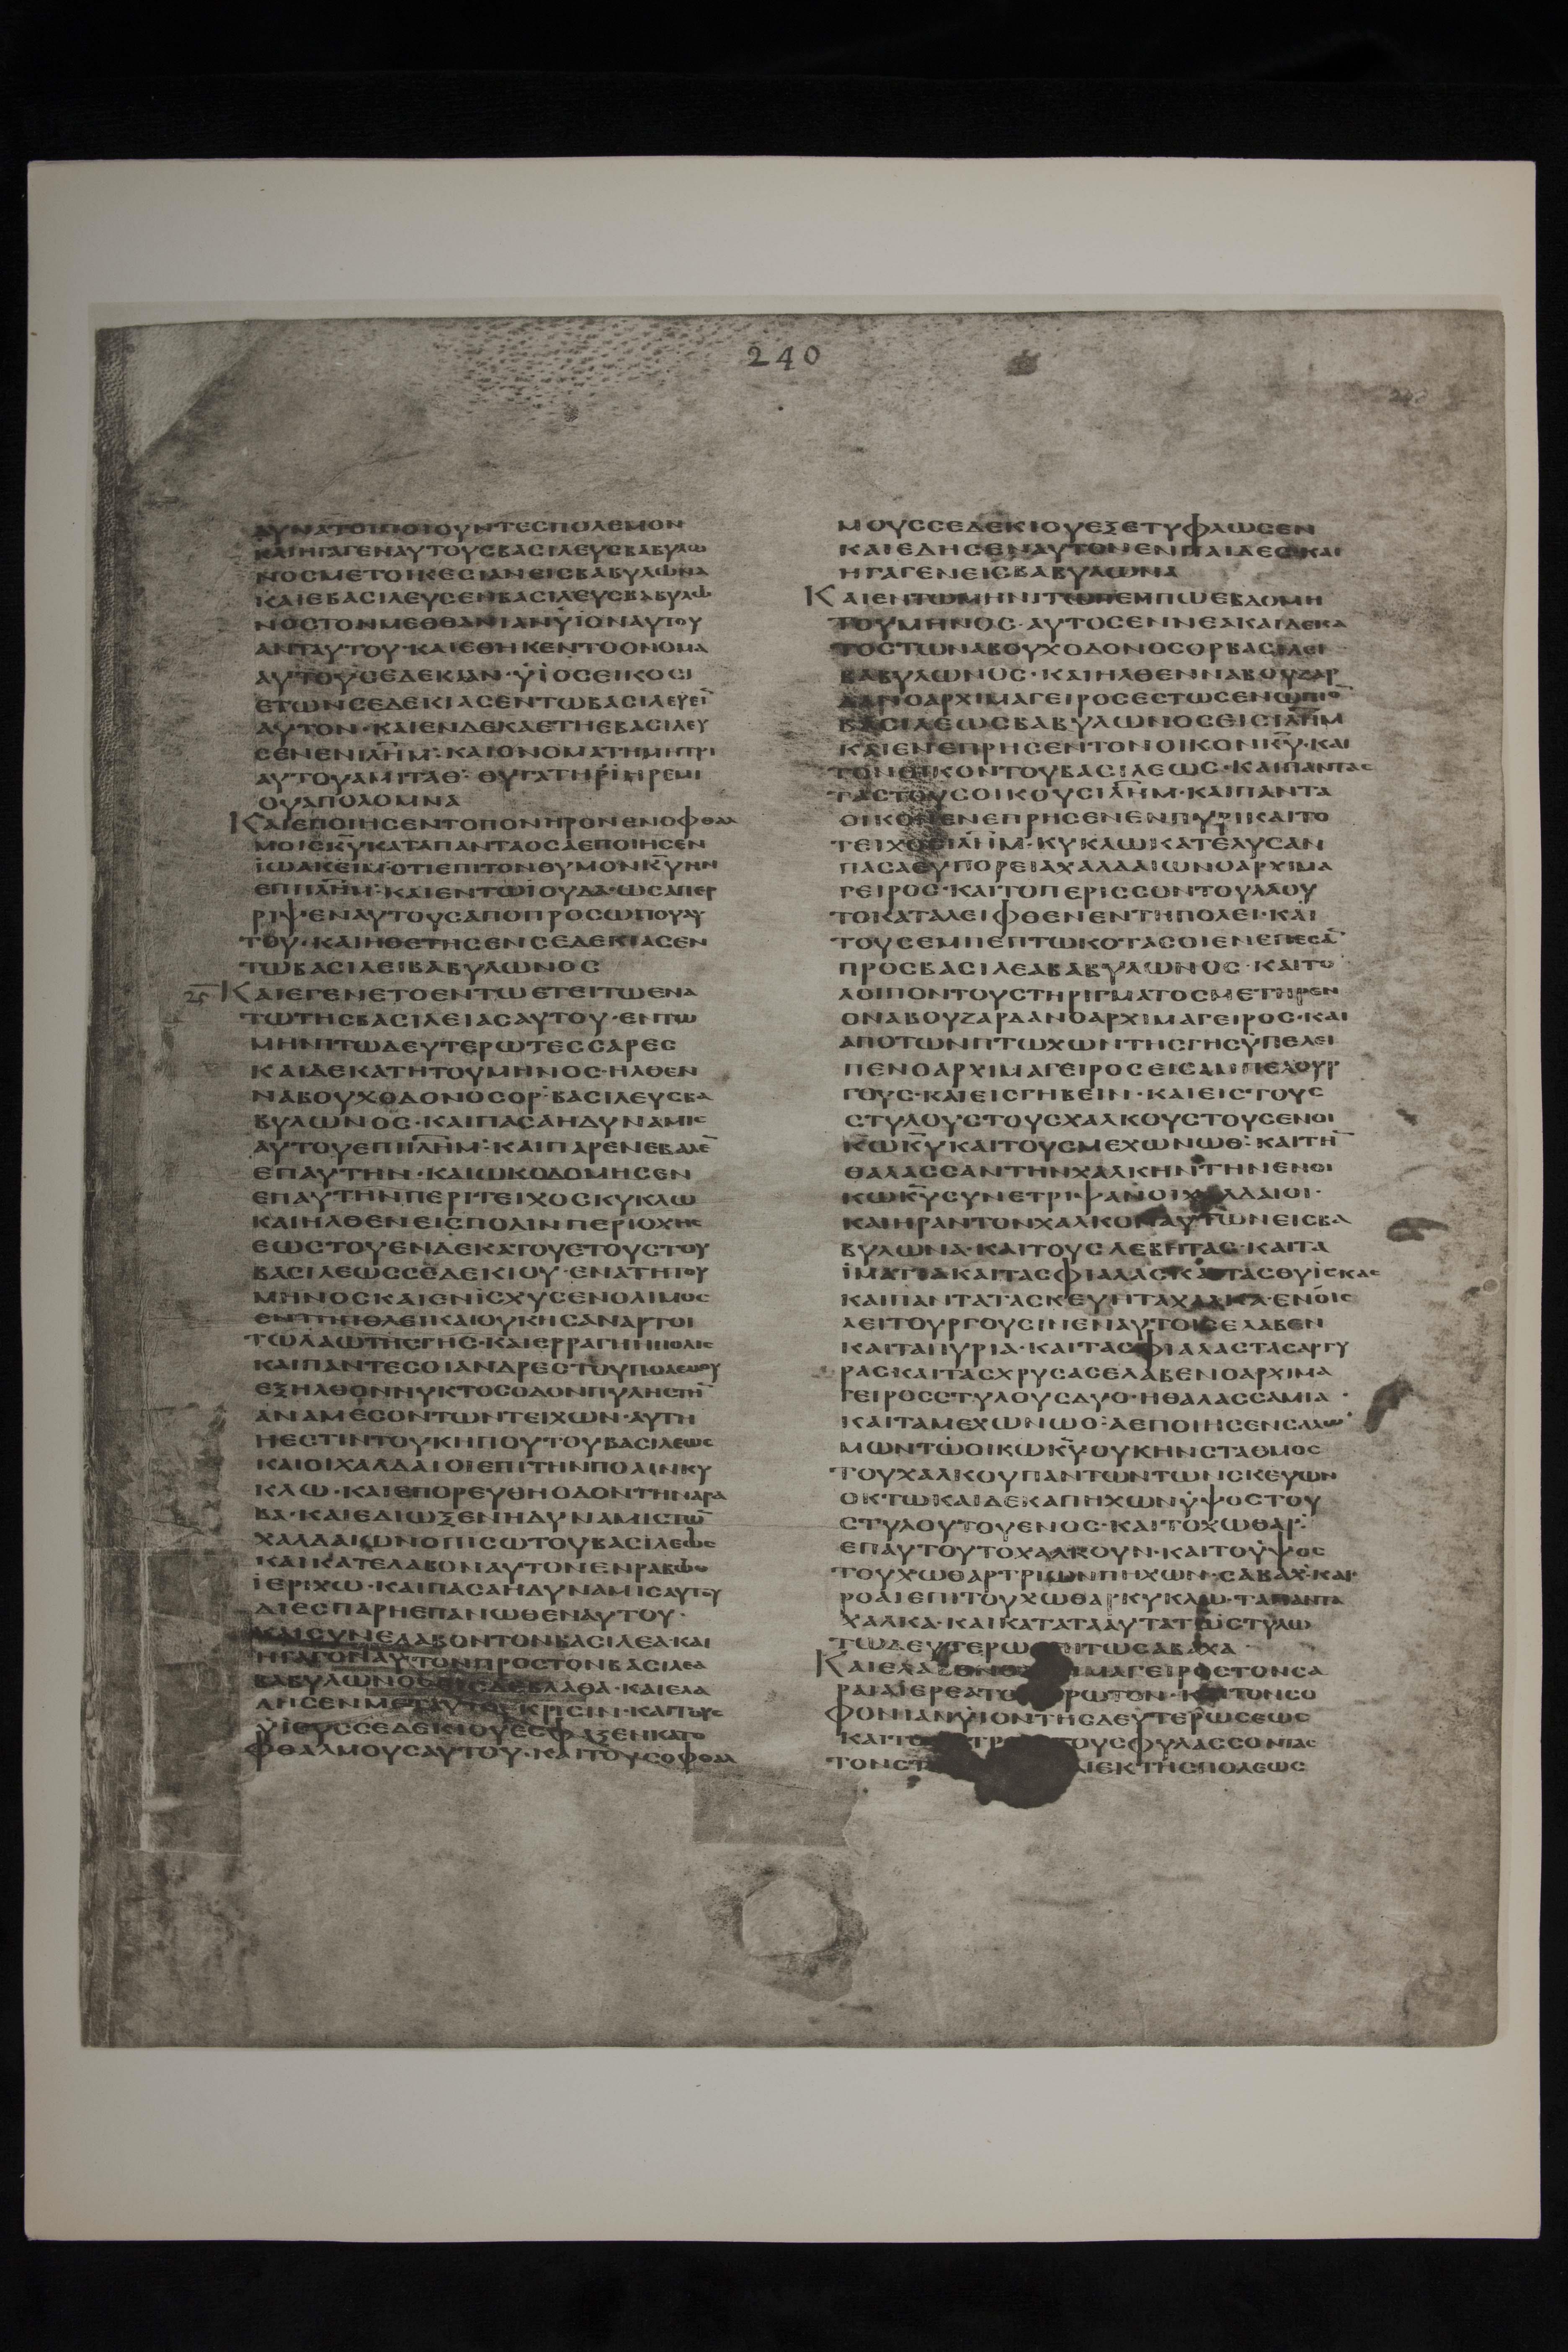 240
ΔΥΝΑΤΟΙΠΟΙΟΥΝΤΕСΠΟΛΕΜΟΝ
ΚΑΙΗΓΑΓΕΝΑΥΤΟΥСΒΑСΙΛΕΥСΒΑΒΥΛΩ
ΝΟСΜΕΤΟΙΚΕСΙΑΝΕΙСΒΑΒΥΛΩΝΑ
ΚΑΙΕΒΑСΙΛΕΥСΕΝΒΑСΙΛΕΥСΒΑΒΥΛΩ
ΝΟСΤΟΝΜΕΘΘΑΝΙΑΝΫΪΟΝΑΥΤΟΥ
ΑΝΤΑΥΤΟΥ·ΚΑΙΕΘΗΚΕΝΤΟΟΝΟΜΑ
ΑΥΤΟΥСΕΔΕΚΙΑΝ·ΫΪΟСΕΙΚΟСΙ
ΕΤΩΝСΕΔΕΚΙΑСΕΝΤΩΒΑСΙΛΕΥΕΙ̅
ΑΥΤΟΝ·ΚΑΙΕΝΔΕΚΑΕΤΗΕΒΑСΙΛΕΥ
СΕΝΕΝΙΛΗ̅Μ:ΚΑΙΟΝΟΜΑΤΗΜΗΤΡΙ
ΑΥΤΟΥΑΜΙΤΑΘ:ΘΥΓΑΤΗΡΪΗΡΕΜΙ
ΟΥΑΠΟΛΟΜΝΑ
ΚΑΙΕΠΟΙΗСΕΝΤΟΠΟΝΗΡΟΝΕΝΟΦΘΑΛ
ΜΟΙСΚ̅ΥΚΑΤΑΠΑΝΤΑΟСΑΕΠΟΙΗСΕΝ
ΪΩΑΚΕΙΜ·ΟΤΙΕΠΙΤΟΝΘΥΜΟΝΚ̅ΥΗΝ
ΕΠΙΙΛΗ̅Μ:ΚΑΙΕΝΤΩΙΟΥΔΑ·ΩСΑΠΕΡ
ΡΙΨΕΝΑΥΤΟΥСΑΠΟΠΡΟСΩΠΟΥΑΥ
ΤΟΥ·ΚΑΙΗΘΕΤΗСΕΝСΕΔΕΚΙΑСΕΝ
ΤΩΒΑСΙΛΕΙΒΑΒΥΛΩΝΟС
25 ΚΑΙΕΓΕΝΕΤΟΕΝΤΩΕΤΕΙΤΩΕΝΑ
ΤΩΤΗСΒΑСΙΛΕΙΑСΑΥΤΟΥ·ΕΝΤΩ
ΜΗΝΙΤΩΔΕΥΤΕΡΩΤΕССΑΡΕС
ΚΑΙΔΕΚΑΤΗΤΟΥΜΗΝΟС·ΗΛΘΕΝ
ΝΑΒΟΥΧΟΔΟΝΟСΟΡ·ΒΑСΙΛΕΥСΒΑ
ΒΥΛΩΝΟС·ΚΑΙΠΑСΑΗΔΥΝΑΜΙС
ΑΥΤΟΥΕΠΙΙΛΗ̅Μ:ΚΑΙΠΑΡΕΝΕΒΑΛΕ̅
ΕΠΑΥΤΗΝ·ΚΑΙΩΚΟΔΟΜΗСΕΝ
ΕΠΑΥΤΗΝΠΕΡΙΤΕΙΧΟСΚΥΚΛΩ
ΚΑΙΗΛΘΕΝΕΙСΠΟΛΙΝΠΕΡΙΟΧΗС
ΕΩСΤΟΥΕΝΔΕΚΑΤΟΥΕΤΟΥСΤΟΥ
ΒΑСΙΛΕΩССΕΔΕΚΙΟΥ·ΕΝΑΤΗΤΟΥ
ΜΗΝΟСΚΑΙΕΝΙСΧΥСΕΝΟΛΙΜΟС
ΕΝΤΗΠΟΛΕΙΚΑΙΟΥΚΗСΑΝΑΡΤΟΙ
ΤΩΛΑΩΤΗСΓΗС·ΚΑΙΕΡΡΑΓΗΗΠΟΛΙС
ΚΑΙΠΑΝΤΕСΟΙΑΝΔΡΕСΤΟΥΠΟΛΕΜΟΥ
ΕΞΗΛΘΟΝΝΥΚΤΟСΟΔΟΝΠΥΛΗСΤΗ̅
ΑΝΑΜΕСΟΝΤΩΝΤΕΙΧΩΝ·ΑΥΤΗ
ΗΕСΤΙΝΤΟΥΚΗΠΟΥΤΟΥΒΑСΙΛΕΩС
ΚΑΙΟΙΧΑΛΔΑΙΟΙΕΠΙΤΗΝΠΟΛΙΝΚΥ
ΚΛΩ·ΚΑΙΕΠΟΡΕΥΘΗΟΔΟΝΤΗΝΑΡΑ
ΒΑ·ΚΑΙΕΔΙΩΞΕΝΗΔΥΝΑΜΙСΤΩ̅
ΧΑΛΔΑΙΩΝΟΠΙСΩΤΟΥΒΑСΙΛΕΩС
ΚΑΙΚΑΤΕΛΑΒΟΝΑΥΤΟΝΕΝΡΑΒΩΘ
ΪΕΡΙΧΩ·ΚΑΙΠΑСΑΗΔΥΝΑΜΙСΑΥΤΟΥ
ΔΙΕСΠΑΡΗΕΠΑΝΩΘΕΝΑΥΤΟΥ·
ΚΑΙСΥΝΕΛΑΒΟΝΤΟΝΒΑСΙΛΕΑ·ΚΑΙ
ΗΓΑΓΟΝΑΥΤΟΝΠΡΟСΤΟΝΒΑСΙΛΕΑ
ΒΑΒΥΛΩΝΟСΕΙСΔΕΒΛΑΘΑ·ΚΑΙΕΛΑ
ΛΗСΕΝΜΕΤΑΥΤΟΥΚΡΙСΙΝ·ΚΑΙΤΟΥС
ΫΙΟΥССΕΔΕΚΙΟΥΕСΦΑΞΕΝΚΑΤΟ
ΦΘΑΛΜΟΥСΑΥΤΟΥ·ΚΑΙΤΟΥСΟΦΘΑΛ
ΜΟΥССΕΔΕΚΙΟΥΕΞΕΤΥΦΛΩСΕΝ
ΚΑΙΕΔΗСΕΝΑΥΤΟΝΕΝΠΑΙΔΕС·ΚΑΙ
ΗΓΑΓΕΝΕΙСΒΑΒΥΛΩΝΑ
ΚΑΙΕΝΤΩΜΗΝΙΤΩΠΕΜΠΤΩΕΒΔΟΜΗ
ΤΟΥΜΗΝΟС·ΑΥΤΟСΕΝΝΕΑΚΑΙΔΕΚΑ
ΤΟСΤΩΝΑΒΟΥΧΟΔΟΝΟСΟΡΒΑСΙΛΕΙ
ΒΑΒΥΛΩΝΟС·ΚΑΙΗΛΘΕΝΝΑΒΟΥΖΑΡ
ΔΑΝΟΑΡΧΙΜΑΓΕΙΡΟСΕСΤΩСΕΝΩΠΙΟ̅
ΒΑСΙΛΕΩСΒΑΒΥΛΩΝΟСΕΙСΙΛΗ̅Μ
ΚΑΙΕΝΕΠΡΗСΕΝΤΟΝΟΙΚΟΝΚ̅Υ·ΚΑΙ
ΤΟΝΟΙΚΟΝΤΟΥΒΑСΙΛΕΩС·ΚΑΙΠΑΝΤΑС
ΤΑСΤΟΥСΟΙΚΟΥСΙΛΗ̅Μ·ΚΑΙΠΑΝΤΑ
ΟΙΚΟΝΕΝΕΠΡΗСΕΝΕΝΠΥΡΙΚΑΙΤΟ
ΤΕΙΧΟСΙΛΗ̅Μ·ΚΥΚΛΩΚΑΤΕΛΥСΑΝ
ΠΑСΑΕΥΠΟΡΕΙΑΧΑΛΔΑΙΩΝΟΑΡΧΙΜΑ
ΓΕΙΡΟС·ΚΑΙΤΟΠΕΡΙССΟΝΤΟΥΛΑΟΥ
ΤΟΚΑΤΑΛΕΙΦΘΕΝΕΝΤΗΠΟΛΕΙ·ΚΑΙ
ΤΟΥСΕΜΠΕΠΤΩΚΟΤΑСΟΙΕΝΕΠΕСΑ̅
ΠΡΟСΒΑСΙΛΕΑΒΑΒΥΛΩΝΟС·ΚΑΙΤΟ
ΛΟΙΠΟΝΤΟΥСΤΗΡΙΓΜΑΤΟСΜΕΤΗΡΕΝ
ΟΝΑΒΟΥΖΑΡΔΑΝΟΑΡΧΙΜΑΓΕΙΡΟС·ΚΑΙ
ΑΠΟΤΩΝΠΤΩΧΩΝΤΗСΓΗСΫΠΕΛΕΙ
ΠΕΝΟΑΡΧΙΜΑΓΕΙΡΟСΕΙСΑΜΠΕΛΟΥΡ
ΓΟΥС·ΚΑΙΕΙСΓΗΒΕΙΝ·ΚΑΙΕΙСΤΟΥС
СΤΥΛΟΥСΤΟΥСΧΑΛΚΟΥСΤΟΥСΕΝΟΙ
ΚΩΚ̅ΥΚΑΙΤΟΥСΜΕΧΩΝΩΘ:ΚΑΙΤΗ̅
ΘΑΛΑССΑΝΤΗΝΧΑΛΚΗΝΤΗΝΕΝΟΙ
ΚΩΚ̅ΥСΥΝΕΤΡΙΨΑΝΟΙΧΑΛΔΑΙΟΙ·
ΚΑΙΗΡΑΝΤΟΝΧΑΛΚΟΝΑΥΤΩΝΕΙСΒΑ
ΒΥΛΩΝΑ·ΚΑΙΤΟΥСΛΕΒΗΤΑС·ΚΑΙΤΑ
ΪΜΑΤΙΑΚΑΙΤΑСΦΙΑΛΑСΚΑΙΤΑСΘΥΪСΚΑС
ΚΑΙΠΑΝΤΑΤΑСΚΕΥΗΤΑΧΑΛΚΑ·ΕΝΟΙС
ΛΕΙΤΟΥΡΓΟΥСΙΝΕΝΑΥΤΟΙСΕΛΑΒΕΝ
ΚΑΙΤΑΠΥΡΙΑ·ΚΑΙΤΑСΦΙΑΛΑСΤΑСΑΡΓΥ
ΡΑСΚΑΙΤΑСΧΡΥСΑСΕΛΑΒΕΝΟΑΡΧΙΜΑ
ΓΕΙΡΟССΤΥΛΟΥСΔΥΟ·ΗΘΑΛΑССΑΜΙΑ·
ΚΑΙΤΑΜΕΧΩΝΩΘ:ΑΕΠΟΙΗСΕΝСΑΛΩ
ΜΩΝΤΩΟΙΚΩΚ̅ΥΟΥΚΗΝСΤΑΘΜΟС
ΤΟΥΧΑΛΚΟΥΠΑΝΤΩΝΤΩΝСΚΕΥΩΝ
ΟΚΤΩΚΑΙΔΕΚΑΠΗΧΩΝΫΨΟСΤΟΥ
СΤΥΛΟΥΤΟΥΕΝΟС·ΚΑΙΤΟΧΩΘΑΡ:
ΕΠΑΥΤΟΥΤΟΧΑΛΚΟΥΝ·ΚΑΙΤΟΫΨΟС
ΤΟΥΧΩΘΑΡΤΡΙΩΝΠΗΧΩΝ·СΑΒΑΧ·ΚΑΙ
ΡΟΑΙΕΠΙΤΟΥΧΩΘΑΡΚΥΚΛΩ·ΤΑΠΑΝΤΑ
ΧΑΛΚΑ·ΚΑΙΚΑΤΑΤΑΑΥΤΑΤΩСΤΥΛΩ
ΤΩΔΕΥΤΕΡΩΕΠΙΤΩСΑΒΑΧΑ
ΚΑΙΕΛΑΒΕΝΟ ΙΜΑΓΕΙΡΟСΤΟΝСΑ
ΡΑΙΑΙΕΡΕΑΤΟ ΡΩΤΟΝ·ΚΑΙΤΟΝСΟ
ΦΟΝΙΑΝΫΙΟΝΤΗСΔΕΥΤΕΡΩСΕΩС
ΚΑΙΤΟ ΤΡ ΤΟΥСΦΥΛΑССΟΝΤΑС
ΤΟΝСΤ ΙΕΚΤΗСΠΟΛΕΩС